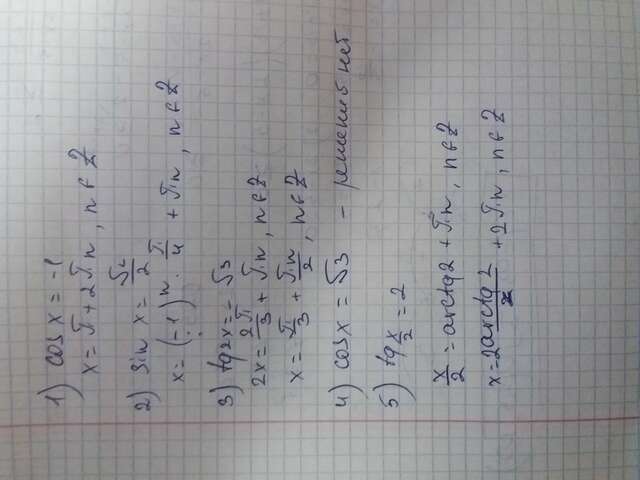 1) cos x = -1
x = π + 2πn, n ∈ Z
2) sin x = √2/2
x = (-1)ⁿ · π/4 + πn, n ∈ Z
3) tg 2x = -√3
2x = 2π/3 + πn, n ∈ Z
x = -π/3 + πn/2, n ∈ Z
4) cos x = √3 - решений нет
5) tg x/2 = 2
x/2 = arctg 2 + πn, n ∈ Z
x = 2 arctg 2 + 2πn, n ∈ Z